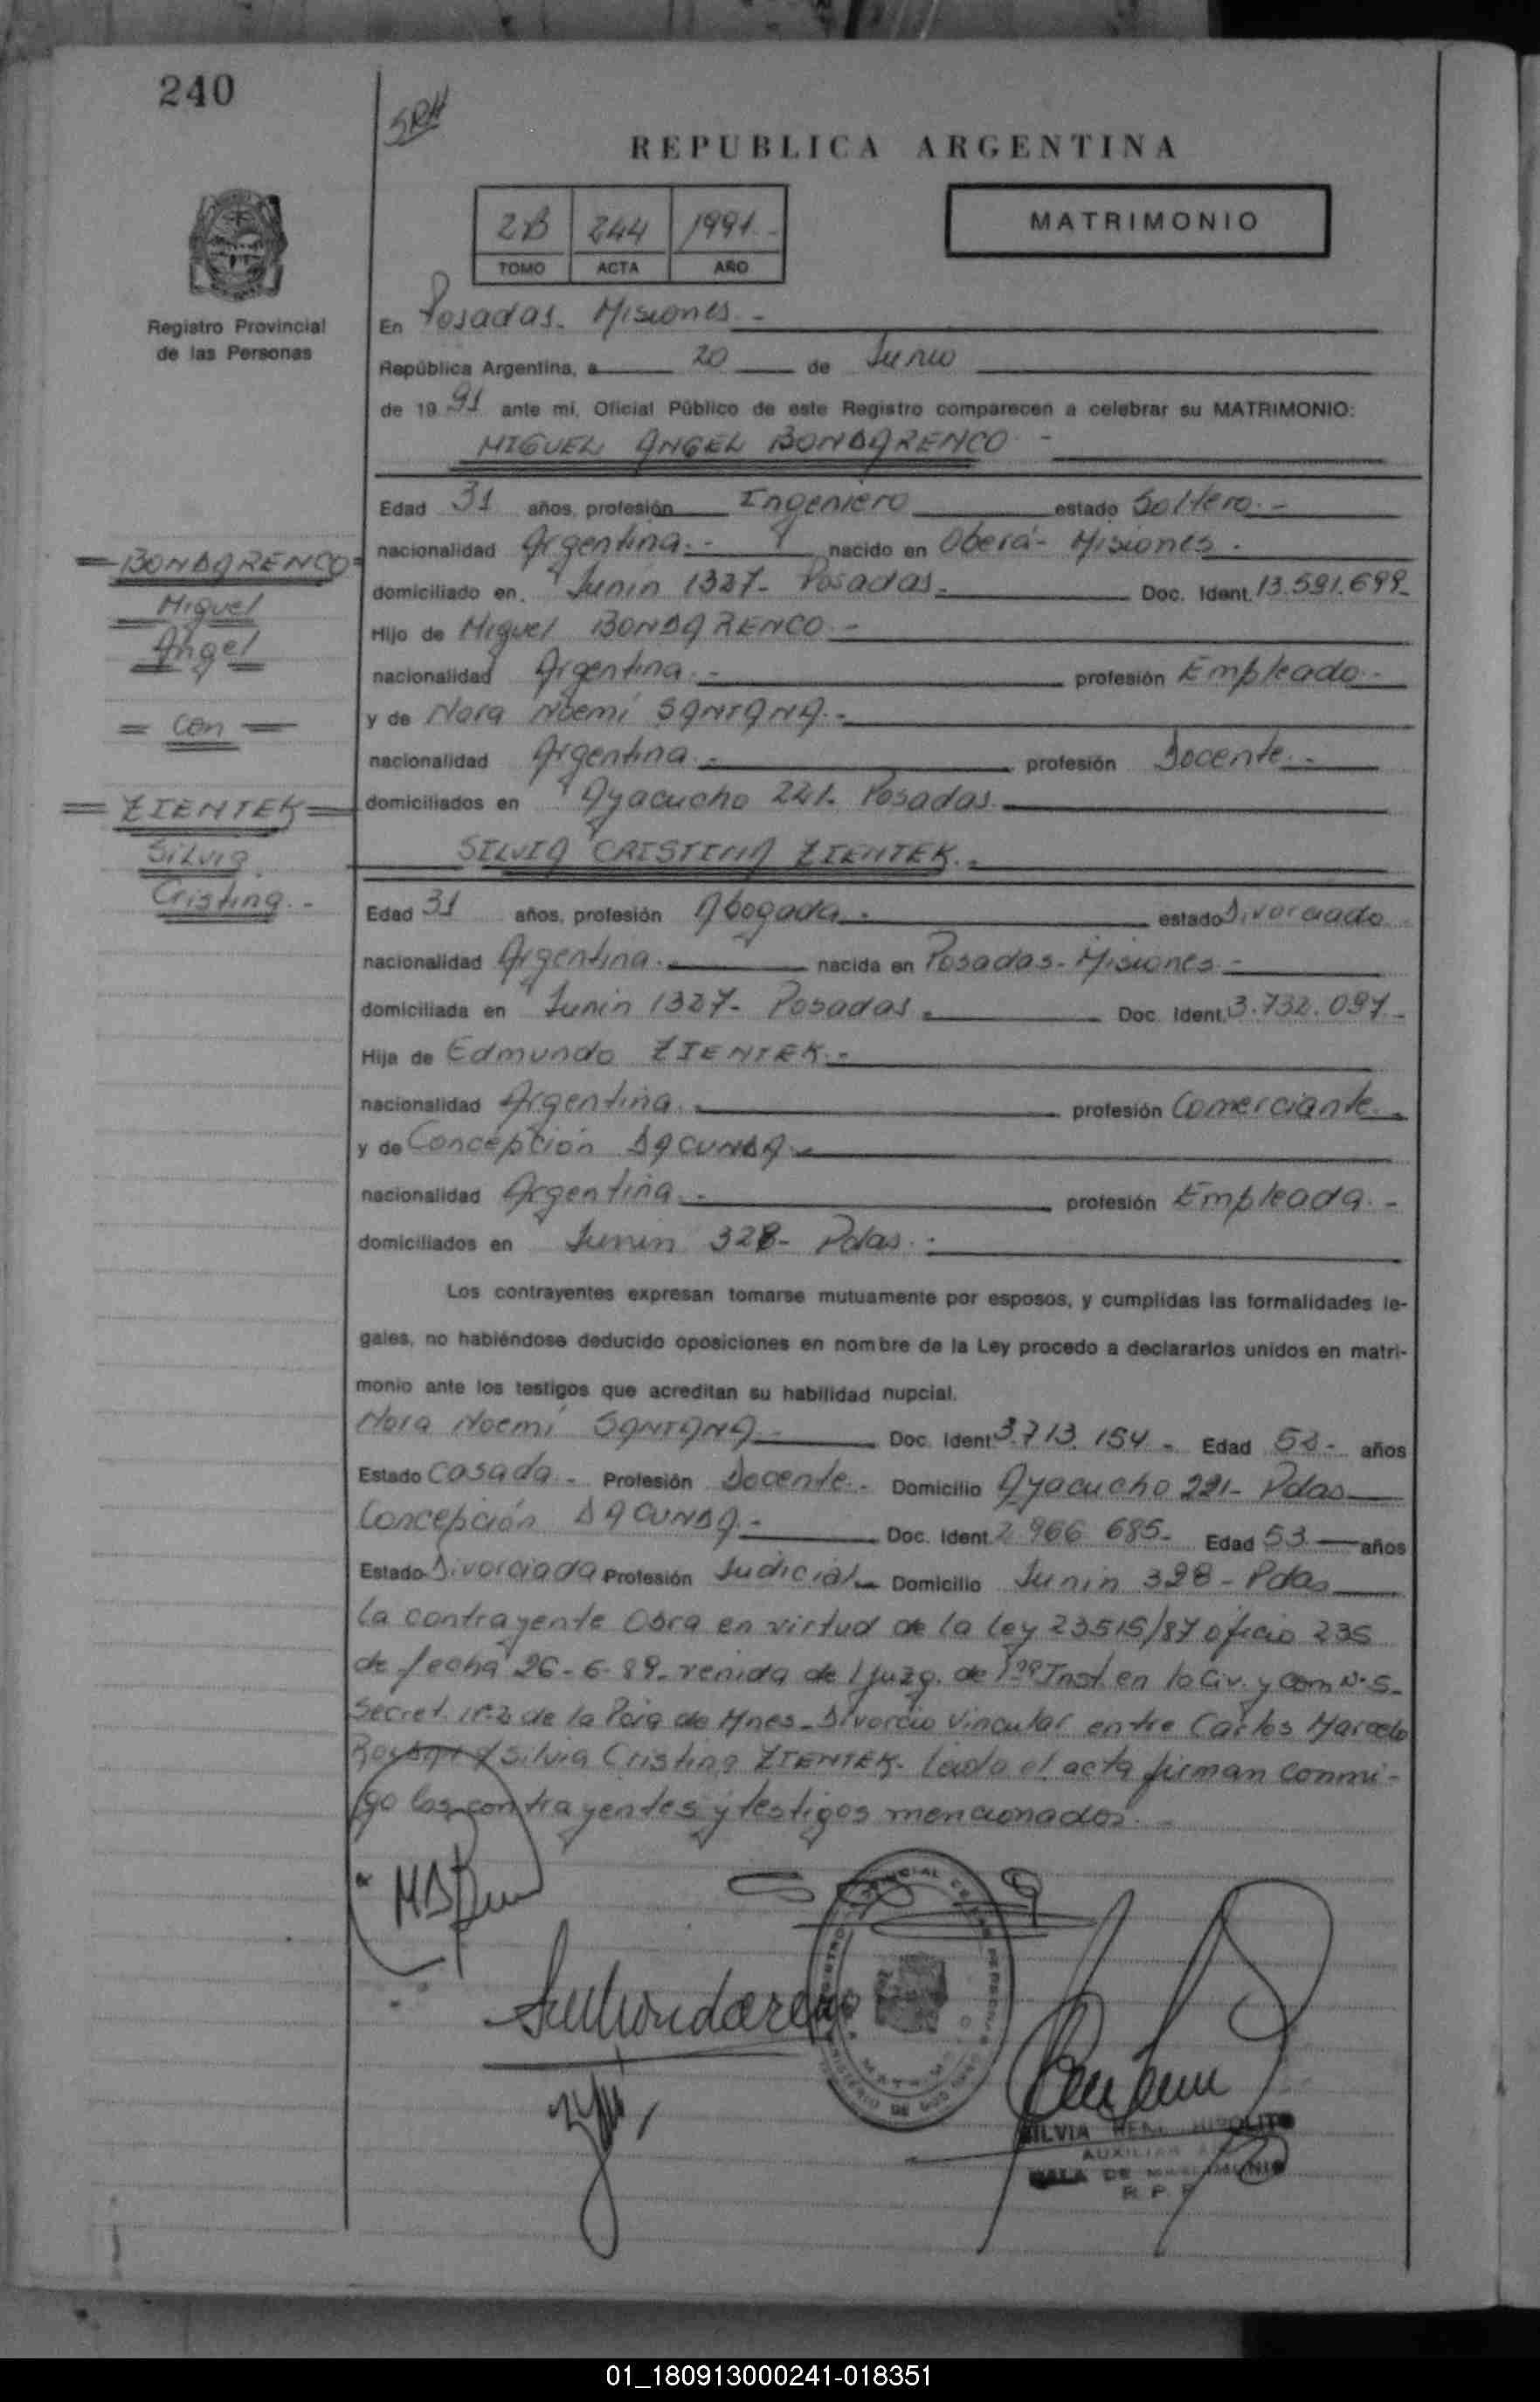 240
SRH
REPUBLICA ARGENTINA
2B 244 1991.-
TOMO ACTA AÑO
MATRIMONIO
Registro Provincial
de las Personas
En Posadas. Misiones.-
República Argentina, a 20 de Junio
de 1991 ante mí, Oficial Público de este Registro comparecen a celebrar su MATRIMONIO:
MIGUEL ANGEL BONDARENCO.-
Edad 31 años, profesión Ingeniero estado Soltero.-
nacionalidad Argentina.- nacido en Oberá- Misiones.
domiciliado en Junin 1327- Posadas.- Doc. Ident. 13.591.699-
Hijo de Miguel BONDARENCO.-
nacionalidad Argentina.- profesión Empleado.-
y de Nora Noemí SANTANA.-
nacionalidad Argentina.- profesión Docente.-
domiciliados en Ayacucho 221. Posadas.
= BONDARENCO =
Miguel
Angel
= con =
= ZIENTEK =
Silvia
Cristina.-
SILVIA CRISTINA ZIENTEK.-
Edad 31 años, profesión Abogada.- estado Divorciado
nacionalidad Argentina.- nacida en Posadas- Misiones.-
domiciliada en Junin 1327- Posadas.- Doc. Ident. 3.732.097-
Hija de Edmundo ZIENTEK.-
nacionalidad Argentina.- profesión Comerciante.-
y de Concepción DACUNDA.-
nacionalidad Argentina.- profesión Empleada.-
domiciliados en Junin 328- Pdas.-
Los contrayentes expresan tomarse mutuamente por esposos, y cumplidas las formalidades le-
gales, no habiéndose deducido oposiciones en nombre de la Ley procedo a declararlos unidos en matri-
monio ante los testigos que acreditan su habilidad nupcial.
Nora Noemí SANTANA.- Doc. Ident. 3.713.154- Edad 52- años
Estado Casada.- Profesión Docente.- Domicilio Ayacucho 221- Pdas
Concepción DACUNDA.- Doc. Ident. 2 966 685- Edad 53 años
Estado Divorciada Profesión Judicial Domicilio Junin 328- Pdas
La contrayente Obra en virtud de la Ley 23515/87 oficio 235
de fecha 26-6-89- venida de 1 Juzg. de 1ra Inst. en lo Civ. y Com. N° 5-
Secret. N° 2 de la Pcia de Mnes- Divorcio Vincular entre Carlos Marcelo
y Silvia Cristina ZIENTEK- Leída el acta firman conmi-
go los contrayentes y testigos mencionados.-
SILVIA HIPOLITO
AUXILIAR
SALA DE MATRIMONIO
R. P. P.
01_180913000241-018351